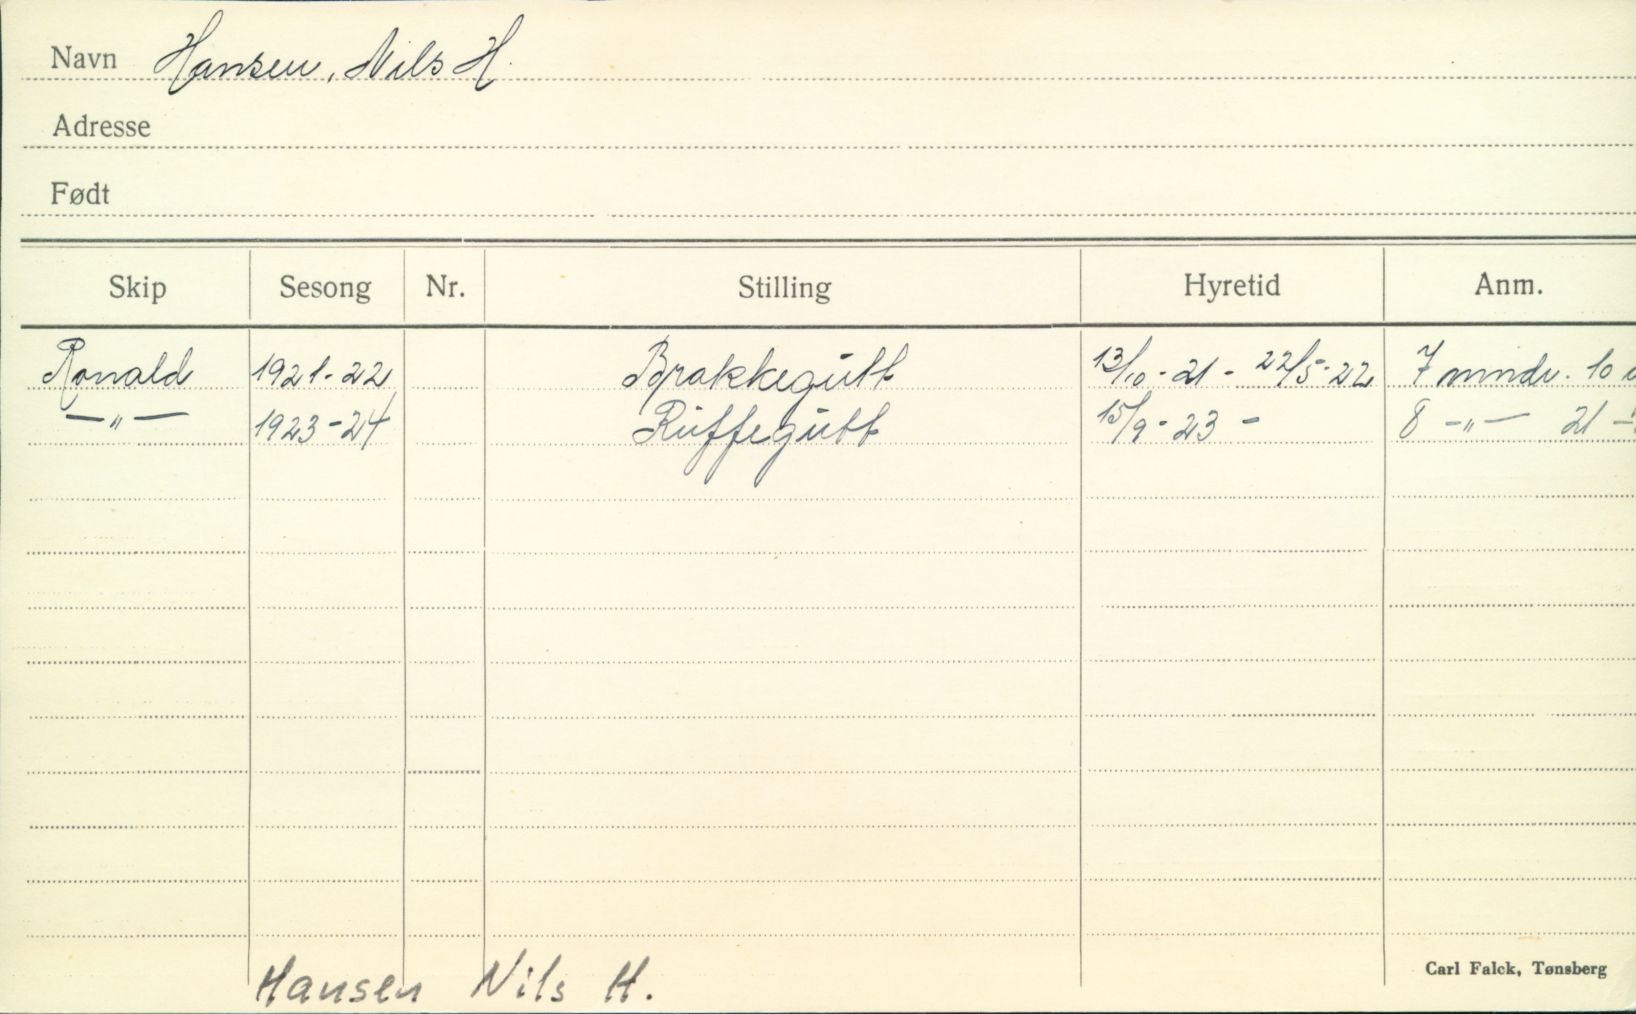 Navn Hansen, Nils H.
Adresse
Født
Skip Sesong Nr. Stilling Hyretid Anm.
Ronald 1921-22 Brakkegutt 13/10-21 - 22/5-22 7 mndr. 10
—„— 1923-24 Rüffegutt 15/9-23 - 8 —„— 21
Hansen Nils H.
Carl Falck, Tønsberg